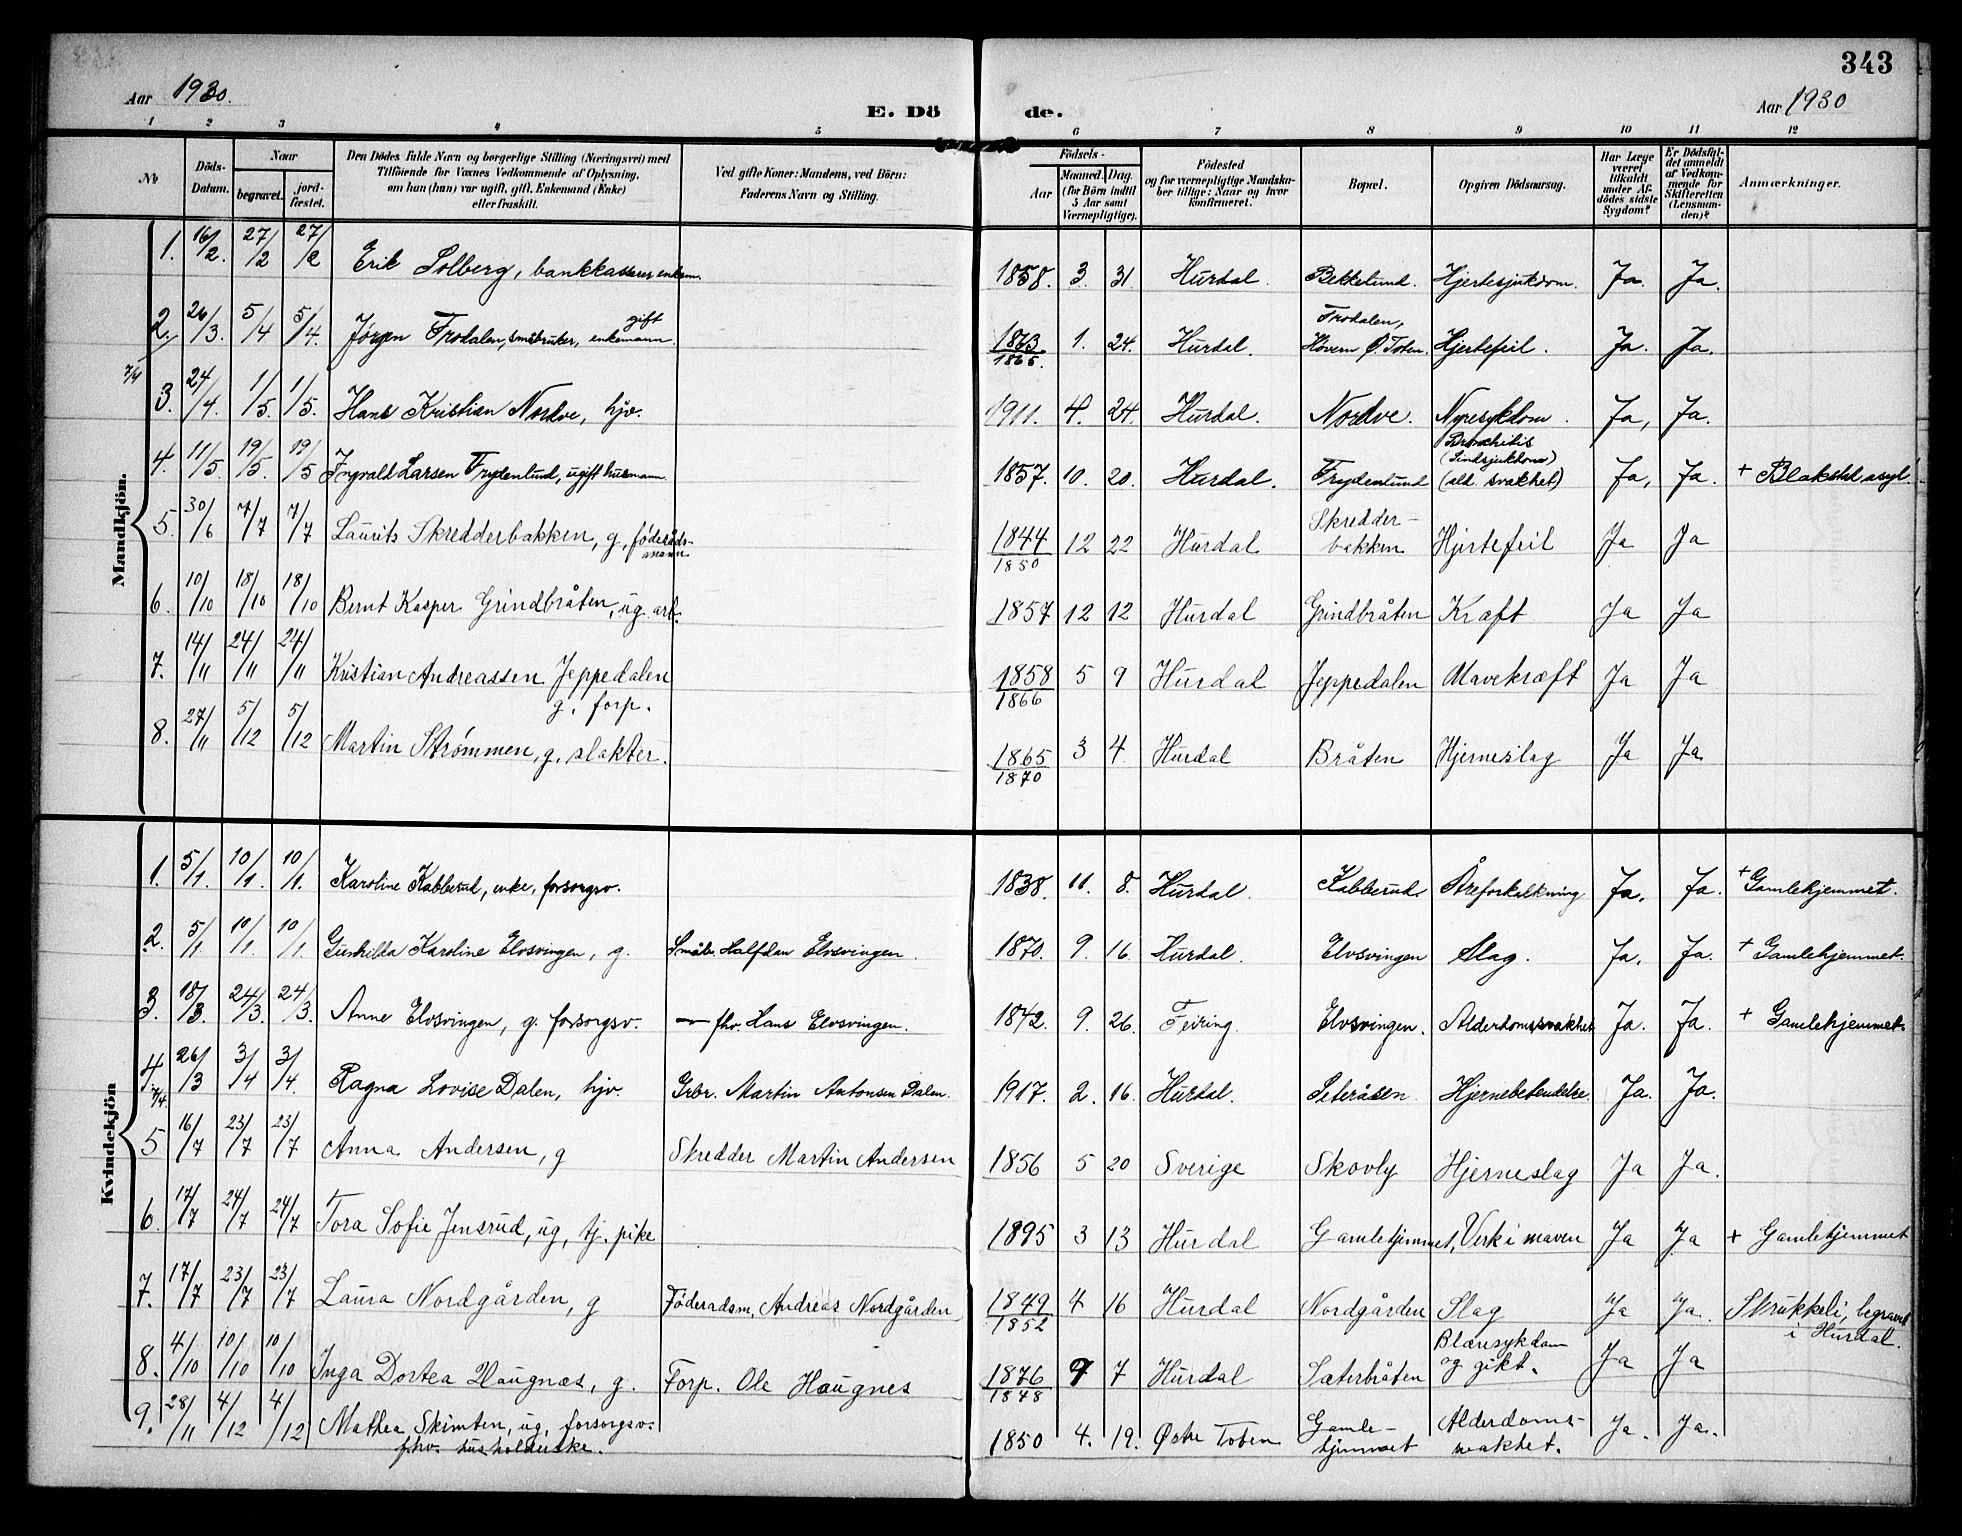 343
Aar 1930.
E. Döde.
Aar 1930
1 2 3 4 5 6 7 8 9 10 11 12
No
Döds-Datum.
Naar
begravet.
jordfæstet.
Den Dödes fulde Navn og borgerlige Stilling (Næringsvei) med
Tilföiende for Voxnes Vedkommende af Oplysning,
om han (hun) var ugift, gift, Enkemand (Enke)
eller fraskilt.
Ved gifte Koner: Mandens, ved Börn:
Faderens Navn og Stilling.
Födsels-
Aar
Maaned. Dag.
(for Börn indtil
5 Aar samt
Værnepligtige).
Födested
og for værnepligtige Mandskaber tillige: Naar og hvor
konfirmeret.
Bopæl.
Opgiven Dödsaarsag.
Har Læge været tilkaldt under Afdödes sidste Sygdom?
Er Dödsfaldet anmeldt af Vedkommende for Skifteretten (Lensmanden)?
Anmærkninger.
Mandkjön.
1. 16/2. 27/2 27/2 Erik Solberg, bankkasserer enkem. 1858. 3. 31. Hurdal. Bekkelund. Hjertesjukdom. Ja. Ja.
2. 26/3. 5/4 5/4. Jørgen Frodalen, småbruker, enkemann. gift 1863/1865. 1. 24. Hurdal. Frodalen, Hovern Ø. Toten. Hjertefeil. Ja. Ja.
7/4
3. 24/4. 1/5. 1/5. Hans Kristian Nordve, hjv. 1911. 4. 24. Hurdal. Nordve. Nyresykdom. Ja, Ja.
4. 11/5. 19/5. 19/5 Ingvald Larsen Frydenlund, ugift husmann. 1857. 10. 20. Hurdal. Frydenlund Bronchitis (Sindsjukdom) (ald. svakhet) Ja, Ja. + Blakstad asyl.
5. 30/6 7/7 7/7 Laurits Skredderbakken, g, føderådsmann. 1844/1850 12 22 Hurdal Skredder-bakken Hjertefeil Ja Ja
6. 10/10 18/10 18/10 Bernt Kasper Grindbråten, ug. arb. 1857 12 12 Hurdal Grindbråten Kræft Ja Ja
7. 14/11 24/11 24/11 Kristian Andreassen Jeppedalen g. forp. 1858/1866 5 9 Hurdal Jeppedalen Mavekræft Ja Ja
8. 27/11 5/12 5/12 Martin Strømmen, g, slakter. 1865/1870 3 4 Hurdal Bråten Hjerneslag Ja Ja
Kvindekjön
1. 5/1. 10/1. 10/1. Karoline Kabberud, enke, forsorgsv. 1838. 11. 8. Hurdal. Kabberud. Åreforkalkning Ja. Ja. + Gamlehjemmet.
2. 5/1 10/1. 10/1. Gunhilda Karoline Elvsvingen, g. Småbr. Halfdan Elvsvingen. 1870. 9. 16. Hurdal. Elvsvingen Slag. Ja. Ja. + Gamlehjemmet.
3. 18/3. 24/3. 24/3. Anne Elvsvingen, g. forsorgsv. — fhv. Hans Elvsvingen. 1842. 9. 26. Feiring. Elvsvingen. Alderdomssvakhet Ja. Ja. + Gamlehjemmet.
4. 26/3 3/4 3/4. Ragna Lovise Dalen, hjv. Grbr. Martin Antonsen Dalen. 1917. 2. 16. Hurdal. Seteråsen Hjernebetendelse. Ja. Ja.
7/4.
5 16/7 23/7 23/7 Anna Andersen, g Skredder Martin Andersen 1856 5 20 Sverige Skovly Hjerneslag Ja Ja.
6. 17/7 24/7 24/7 Tora Sofie Jensrud, ug, tj. pike 1895 3 13 Hurdal Gamlehjemmet, Verk i maven Ja Ja + Gamlehjemmet
7. 17/7 23/7 23/7 Laura Nordgården, g Føderadsm. Andreas Nordgården 1849/1852 4 16 Hurdal Nordgården Slag Ja Ja. Skrukkeli, begravet i Hurdal.
8. 4/10 10/10 10/10 Inga Dortea Haugnæs, g. Forp. Ole Haugnes 1876/1848 9 7 Hurdal Sæterbråten Blæresykdom og gikt. Ja Ja
9. 28/11 4/12 4/12 Mathea Skimten, ug, forsorgsv. fhv. husholderske. 1850 4. 19. Østre Toten Gamle-hjemmet Alderdoms-svakhet. Ja. Ja.